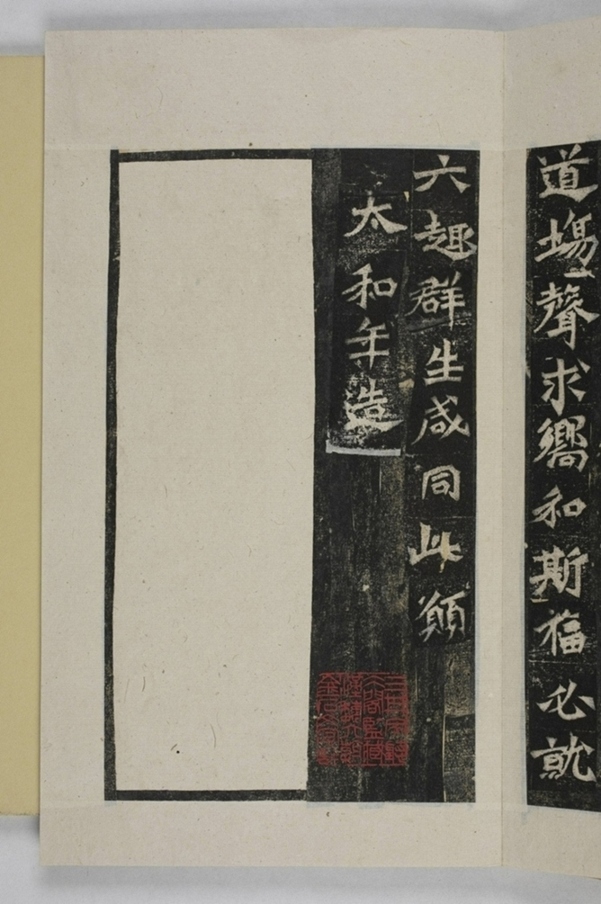 道場聲求嚮和斯福必就
六趣群生咸同此願
太和年造